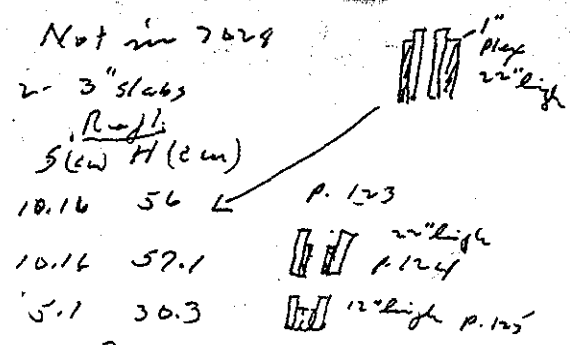 Not in 7029
1"
plex
22" high
2- 3" slabs
Refl.
S(cm) H(cm)
10.16 56
p. 123
10.16 57.1
22" high
p. 124
5.1 30.3
12" high p. 125